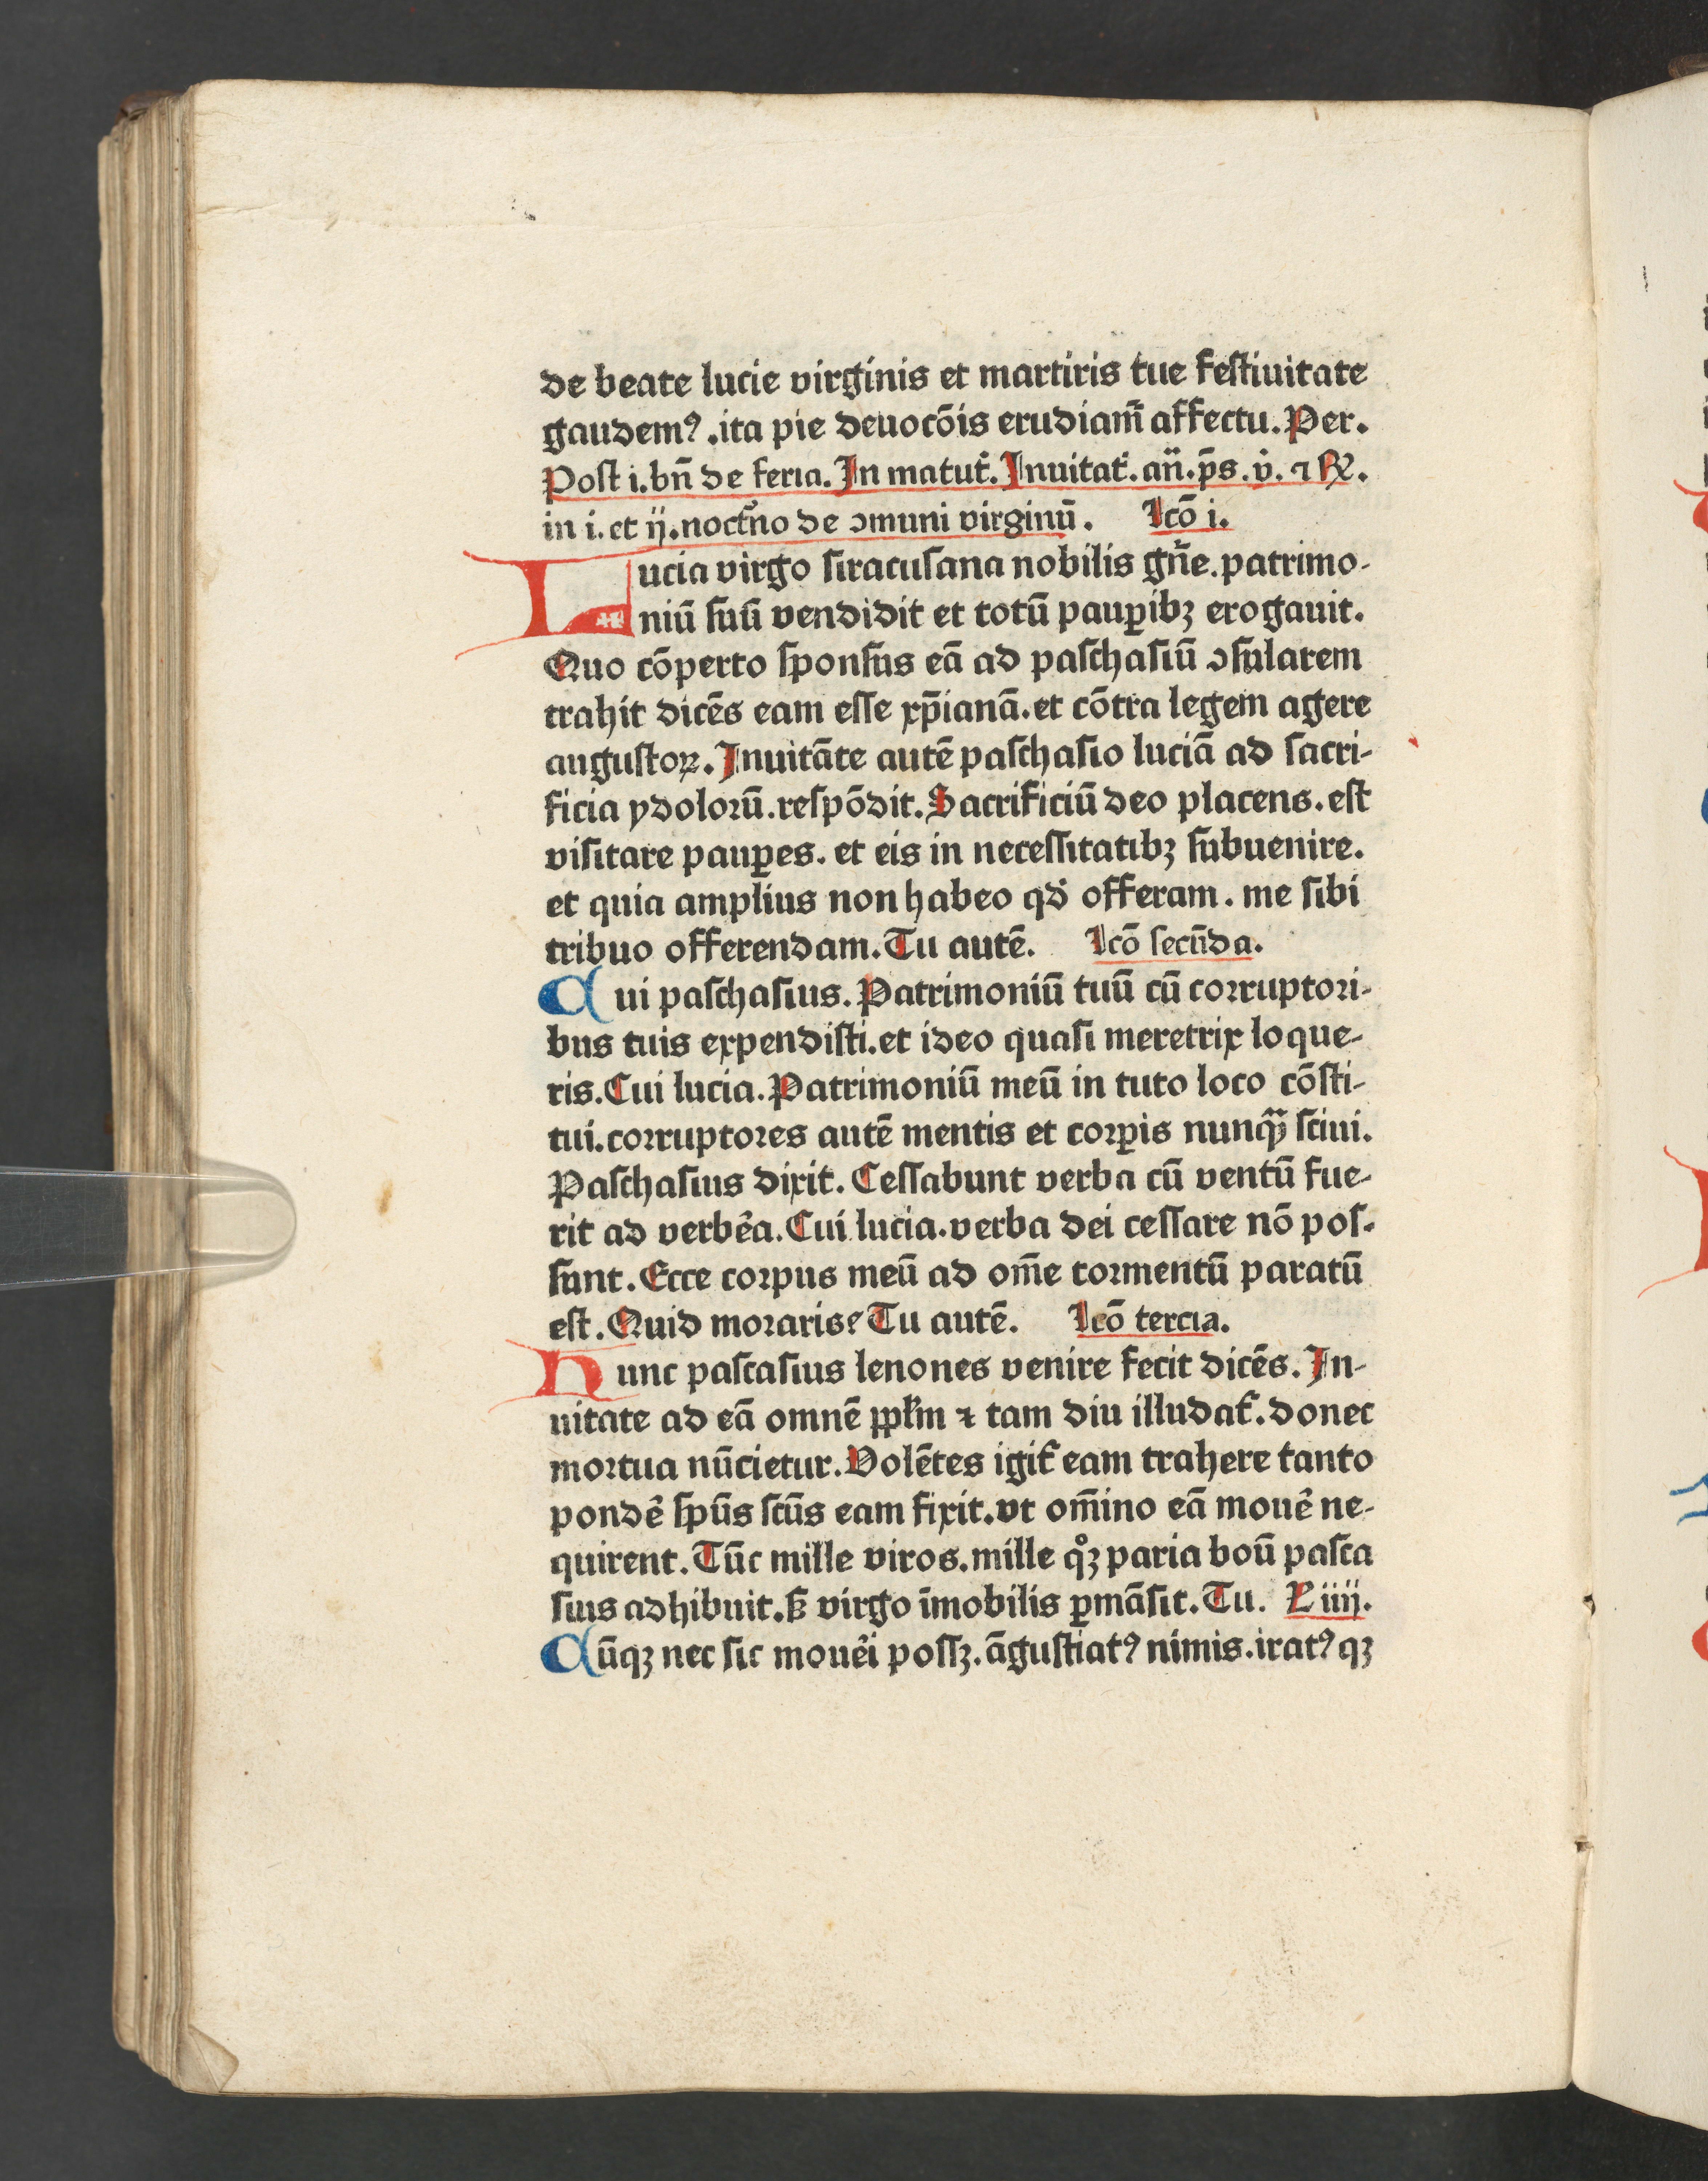 de beate lucie virginis et martiris tue festiuitate
gaudemꝰ .ita pie deuocōis erudiam̄ affectu. Per.
Post i. bn̄ de feria. In matut̉. Inuitat̉. an̄. ps̄. v̉. ⁊ ℟.
in i. et ij. noct̉no de ꝯmuni virginū. Lcō i.
Lucia virgo siracusana nobilis gn̉e. patrimo-
niū suū vendidit et totū paupibꝫ erogauit.
Quo cōperto sponsus eā ad paschasiū ꝯsularem
trahit dicēs eam esse xp̄ianā. et cōtra legem agere
augustoꝝ. Inuitāte autē paschasio luciā ad sacri-
ficia ydolorū. respōdit. Sacrificiū deo placens. est
visitare pauꝑes. et eis in necessitatibꝫ subuenire.
et quia amplius non habeo qd̉ offeram. me sibi
tribuo offerendam. Tu autē. Lcō secūda.
Cui paschasius. Patrimoniū tuū cū corruptori-
bus tuis expendisti. et ideo quasi meretrix loque-
ris. Cui lucia. Patrimoniū meū in tuto loco cōsti-
tui. corruptores autē mentis et corꝑis nunqͣꝫ sciui.
Paschasius dixit. Cessabunt verba cū ventū fue-
rit ad verbe̓a. Cui lucia. verba dei cessare nō pos-
sunt. Ecce corpus meū ad om̄e tormentū paratū
est. Quid moraris? Tu autē. Lcō tercia.
Hunc pascasius lenones venire fecit dicēs. In-
uitate ad eā omnē ppl̉m ⁊ tam diu illudat̉. donec
mortua nūcietur. Volētes igit̉ eam trahere tanto
ponde̓ spūs scūs eam fixit. vt om̄ino eā moue̓ ne-
quirent. Tūc mille viros. mille qͦꝫ paria boū pasca
sius adhibuit. sꝫ virgo īmobilis ꝑmāsit. Tu. L̉ iiij.
Cūqꝫ nec sic moue̓i possꝫ. āgustiatꝰ nimis. iratꝰqꝫ